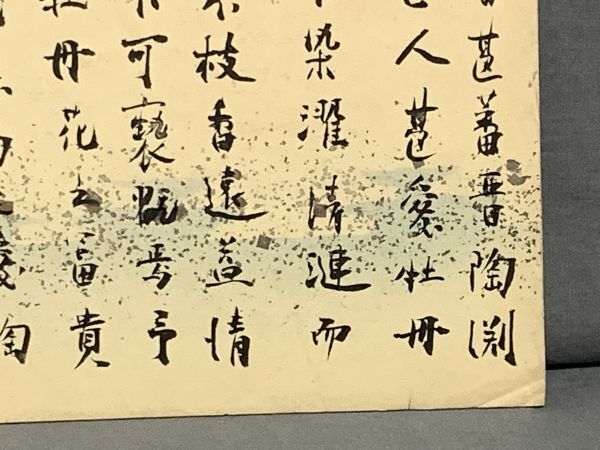 甚蕃晉陶渕
人甚愛牡丹
染濯清漣而
不枝香遠益情
不可褻翫焉予
牡丹花之富貴
愛陶